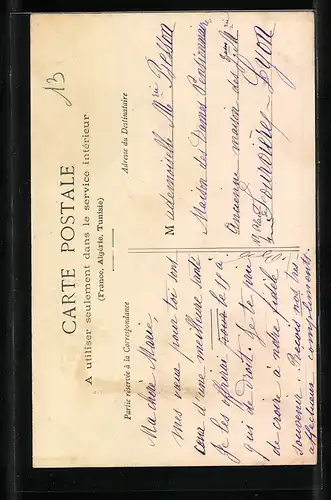 13
CARTE POSTALE
A utiliser seulement dans le service intérieur
(France, Algérie, Tunisie)
Partie réservée à la Correspondance
Adresse du Destinataire
Ma chère Marie,
mes vœux pour toi sont
ceux d'une meilleure santé
Je les offrirai sous le 13 à
qui de droit. Je te prie
de croire à notre fidèle
souvenir. Reçois nos très
affectueux compliments.
Mademoiselle Mie Besson
Maison des Dames Pensionnaires
Ancienne maison des
Fourvière - Lyon